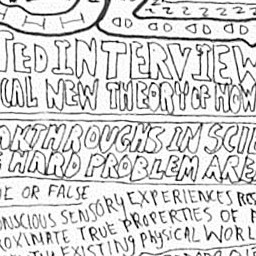 TED INTERVIEW
CAL NEW THEORY OF HOW
AKTHROUGHS IN SCIE
HARD PROBLEM ARE
E OR FALSE
ONSCIOUS SENSORY EXPERIENCES
PROPERTIES OF
ROXIMATE TRUE
EXISTING PHYSICAL WORL